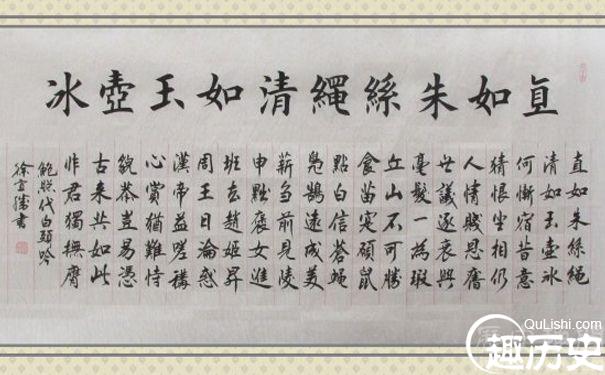 直如朱絲繩清如玉壺冰
直如朱絲繩
清如玉壺冰
何慚宿昔意
猜恨坐相仍
人情賤恩舊
世議逐衰興
毫髮一為瑕
丘山不可勝
食苗實碩鼠
點白信蒼蠅
鳧鵠遠成美
薪芻前見陵
申黜褒女進
班去趙姬昇
周王日淪惑
漢帝益嗟稱
心賞猶難恃
貌恭豈易憑
古來共如此
非君獨撫膺
鮑照代白頭吟
徐書
QuLishi.com
趣历史